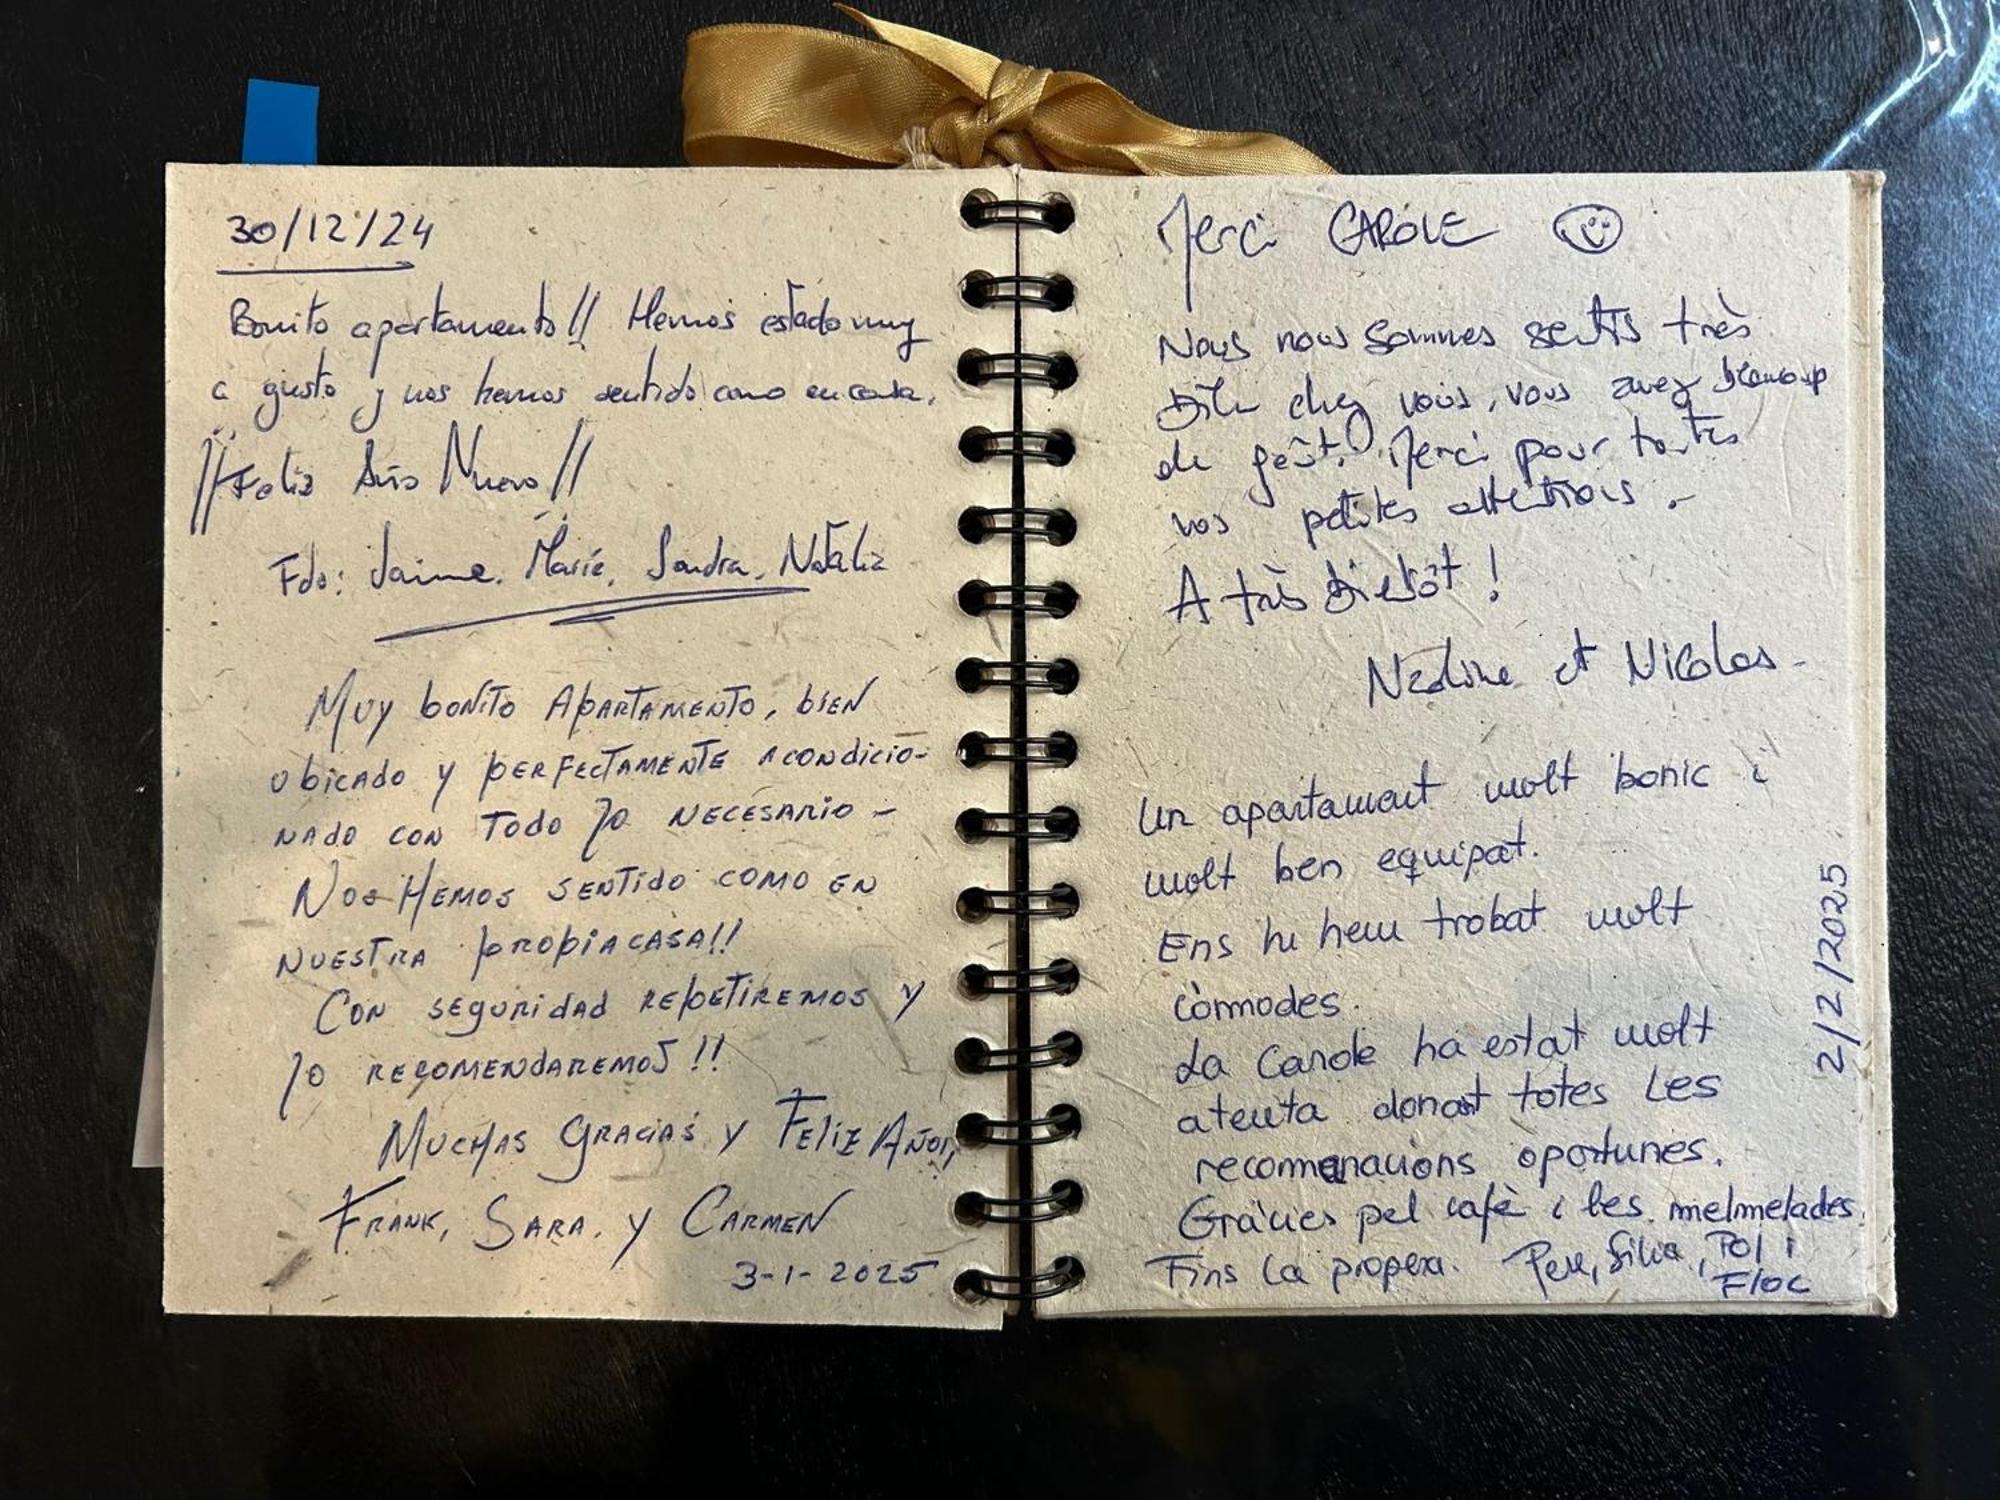 30/12/24
Bonito apartamento!! Hemos estado muy
a gusto y nos hemos sentido como en casa.
¡¡Feliz Año Nuevo!!
Fdo: Jaime, Marié, Sandra, Natalia
MUY bONITO APARTAMENTO, bIEN
UbICADO Y PERFECTAMENTE ACONDICIO-
NADO CON TODO lO NECESARIO -
NOS HEMOS SENTIDO COMO EN
NUESTRA PROPIA CASA!!
CON SEGURIDAD REPETIREMOS Y
lO RECOMENDAREMOS!!
MUCHAS GRACIAS Y FELIZ AÑO!,
FRANK, SARA, Y CARMEN
3-1-2025
Merci CAROLE
Nous nous sommes sentis très
bien chez vous, vous avez beaucoup
de goût. Merci pour toutes
vos petites attentions.-
A très bientôt!
Nadine et Nicolas-
Un apartament molt bonic i
molt ben equipat.
Ens hi hem trobat molt
còmodes.
La Carole ha estat molt
atenta donat totes les
recomanacions oportunes.
Gràcies pel cafè i les melmelades.
Fins la propera. Pere, Sílvia, Pol i
Floc
2/2/2025